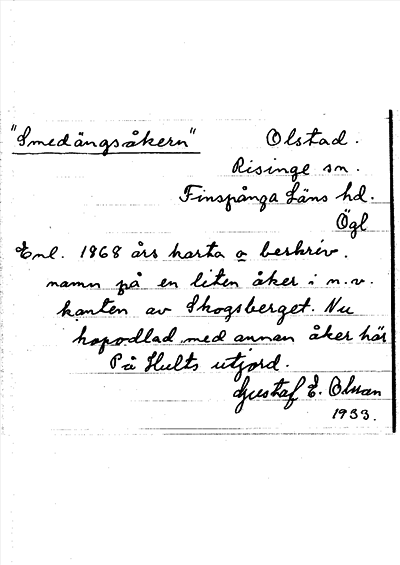 "Smedängsåkern"
Olstad.
Risinge sn.
Finspånga Läns hd.
Ögl
Enl. 1868 års karta o beskriv.
namn på en liten åker i n.v.
kanten av Skogsberget. Nu
hopodlad med annan åker här
På Hults utjord.
Gustaf E. Olsson
1933.